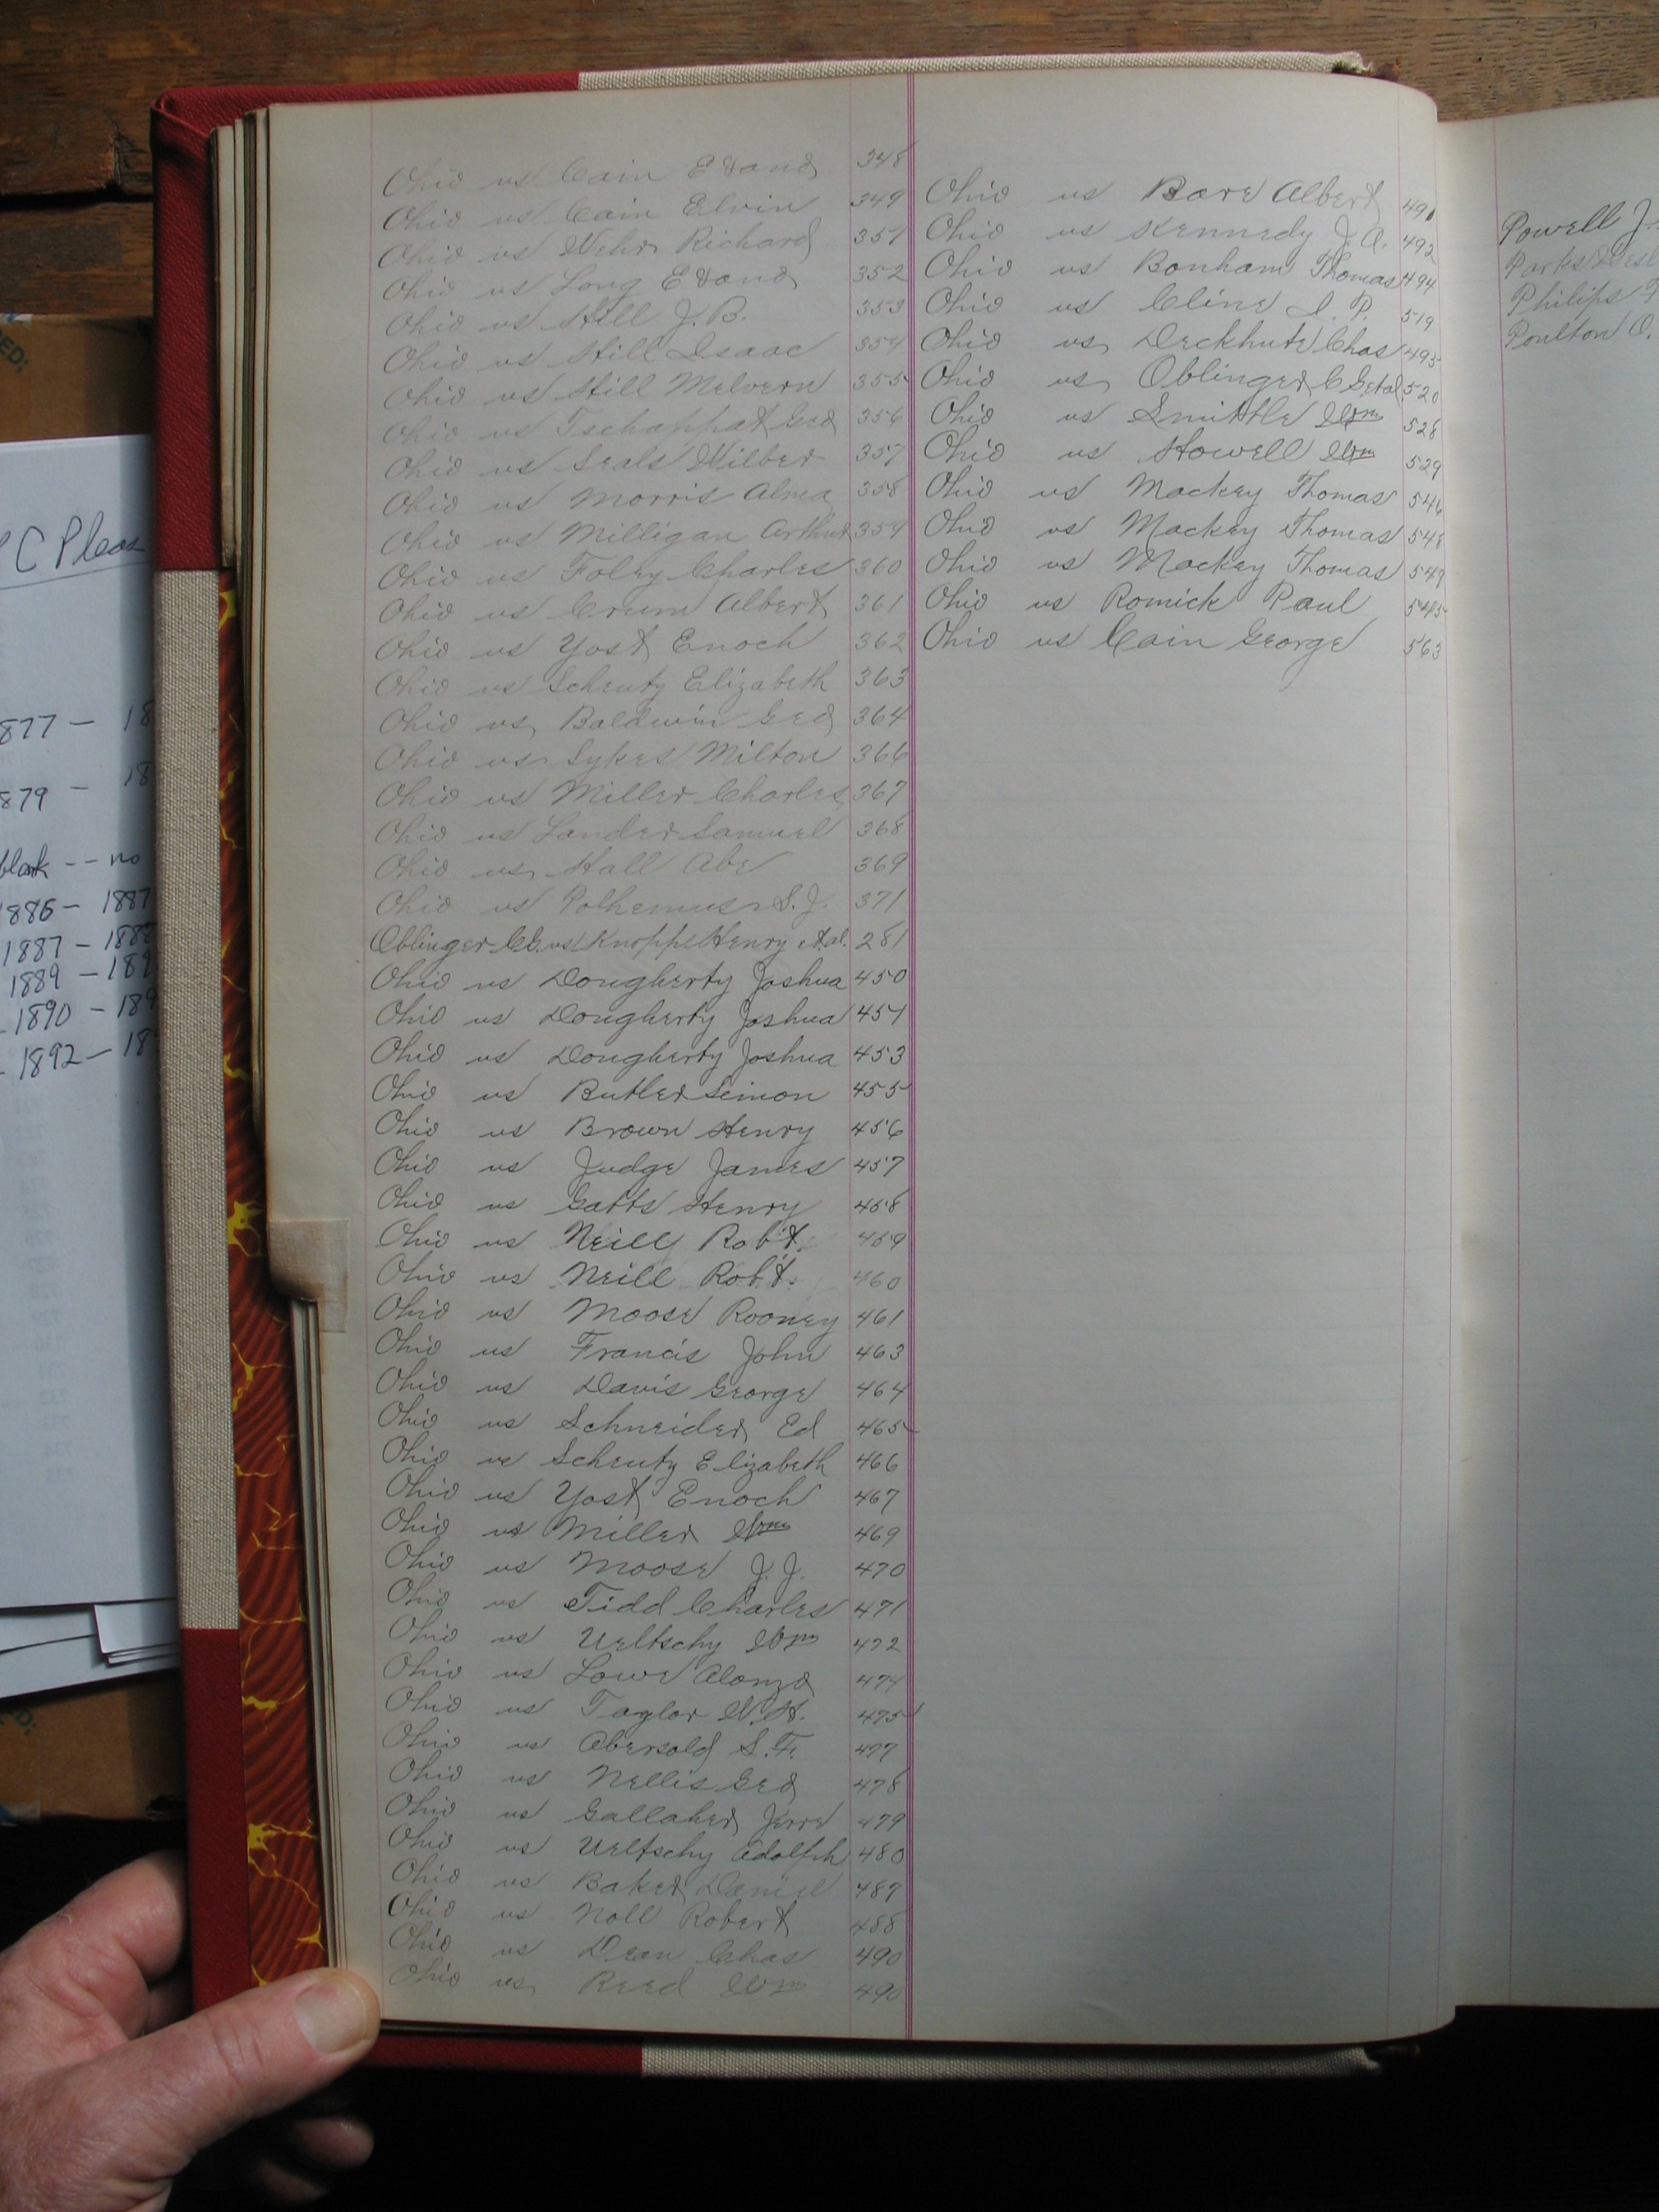 Ohio vs Cain Edand 348
Ohio vs Cain Elvin 349
Ohio vs Wehr Richard 351
Ohio vs Long Edand 352
Ohio vs Hill J. B. 353
Ohio vs Hill Isaac 354
Ohio vs Hill Melvern 355
Ohio vs Tschappat Geo 356
Ohio vs Seals Wilber 357
Ohio vs Morris Alma 358
Ohio vs Milligan Arthur 359
Ohio vs Foley Charles 360
Ohio vs Crum Albert 361
Ohio vs Yost Enoch 362
Ohio vs Scheuty Elizabeth 363
Ohio vs Baldwin Geo 364
Ohio vs Sykes Milton 366
Ohio vs Miller Charles 367
Ohio vs Lander Samuel 368
Ohio vs Hall Abe 369
Ohio vs Polhemus S. J. 371
Oblinger C G. vs Knopps Henry et al. 281
Ohio vs Dougherty Joshua 450
Ohio vs Dougherty Joshua 451
Ohio vs Dougherty Joshua 453
Ohio vs Butler Simon 455
Ohio vs Brown Henry 456
Ohio vs Judge James 457
Ohio vs Gatts Henry 458
Ohio vs Neill Rob't. 459
Ohio vs Neill Rob't. 460
Ohio vs Moose Rooney 461
Ohio vs Francis John 463
Ohio vs Davis George 464
Ohio vs Schneider Ed 465
Ohio vs Scheuty Elizabeth 466
Ohio vs Yost Enoch 467
Ohio vs Miller Wm 469
Ohio vs Moose J. J. 470
Ohio vs Tidd Charles 471
Ohio vs Ueltschy Wm 472
Ohio vs Lowe Alonzo 474
Ohio vs Taylor W. H. 475
Ohio vs Abersold S. F. 477
Ohio vs Nellis Geo 478
Ohio vs Gallaher Jerre 479
Ohio vs Ueltschy Adolph 480
Ohio vs Baker Daniel 487
Ohio vs Noll Robert 488
Ohio vs Dean Chas 490
Ohio vs Reed Wm 490
Ohio vs Bare Albert 491
Ohio vs Kennedy J. A. 492
Ohio vs Bonham Thomas 494
Ohio vs Cline I. P. 519
Ohio vs Deckhute Chas 495
Ohio vs Oblinger C G et al 520
Ohio vs Smittle Wm 528
Ohio vs Howell Wm 529
Ohio vs Mackey Thomas 546
Ohio vs Mackey Thomas 548
Ohio vs Mackey Thomas 549
Ohio vs Romick Paul 545
Ohio vs Cain George 563
Powell J.
Parks
Philips
Poulton O.
C Pleas
877 - 18
879 - 18
blank -- no
1886 - 1887
1887 - 1888
1889 - 189
1890 - 189
1892 - 18